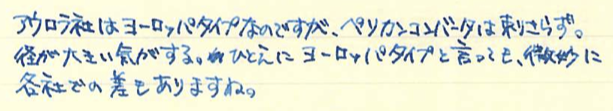 アウロラ社はヨーロッパタイプなのですが、ペリカンコンバータは刺さらず。
径が大きい気がする。ひとえにヨーロッパタイプと言っても、微妙に
各社での差もありますね。